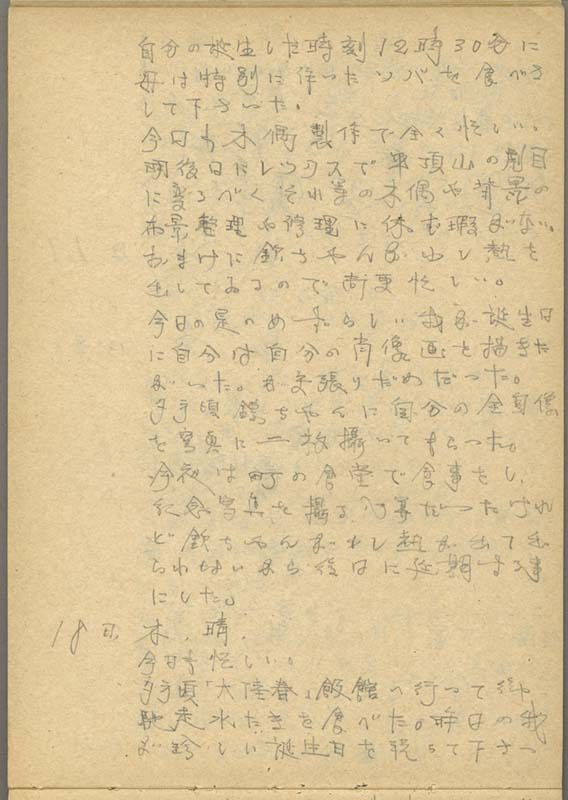 自分の誕生した時刻12時30分に
母は特別に作ったソバを食べさ
して下さった。
今日も木偶製作で全く忙しい。
明後日にレックスで平頂山の劇目
に変るべくそれ等の木偶や背景の
布景整理や修理に休む暇がない。
おまけに鉄ちゃんが少し熱を
出してゐるので尚更忙しい。
今日の是のめづらしい我が誕生日
に自分は自分の肖像画を描きた
かった。が矢張りだめだった。
夕方頃鉄ちゃんに自分の全身像
を写真に二枚撮いてもらった。
今夜は町の食堂で食事をし、
紀念写真を撮る予算だったけれ
ど鉄ちゃんが少し熱が出て出
られないから後日に延期する事
にした。
18日. 木. 晴.
今日も忙しい。
夕方頃「大陸春」飯館へ行って御
馳走水たきを食べた。昨日の我
が珍しい誕生日を祝って下さっ